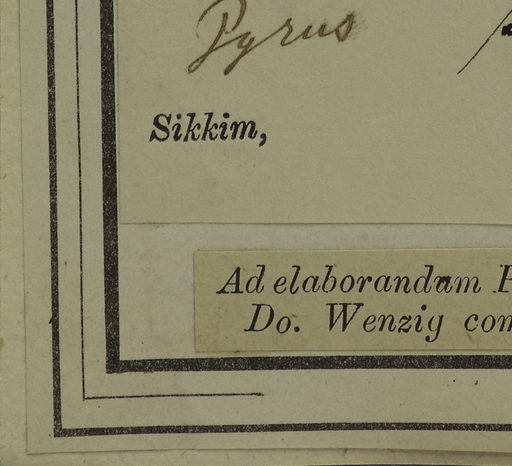 Pyrus
Sikkim,
Ad elaborandum
Do. Wenzig com